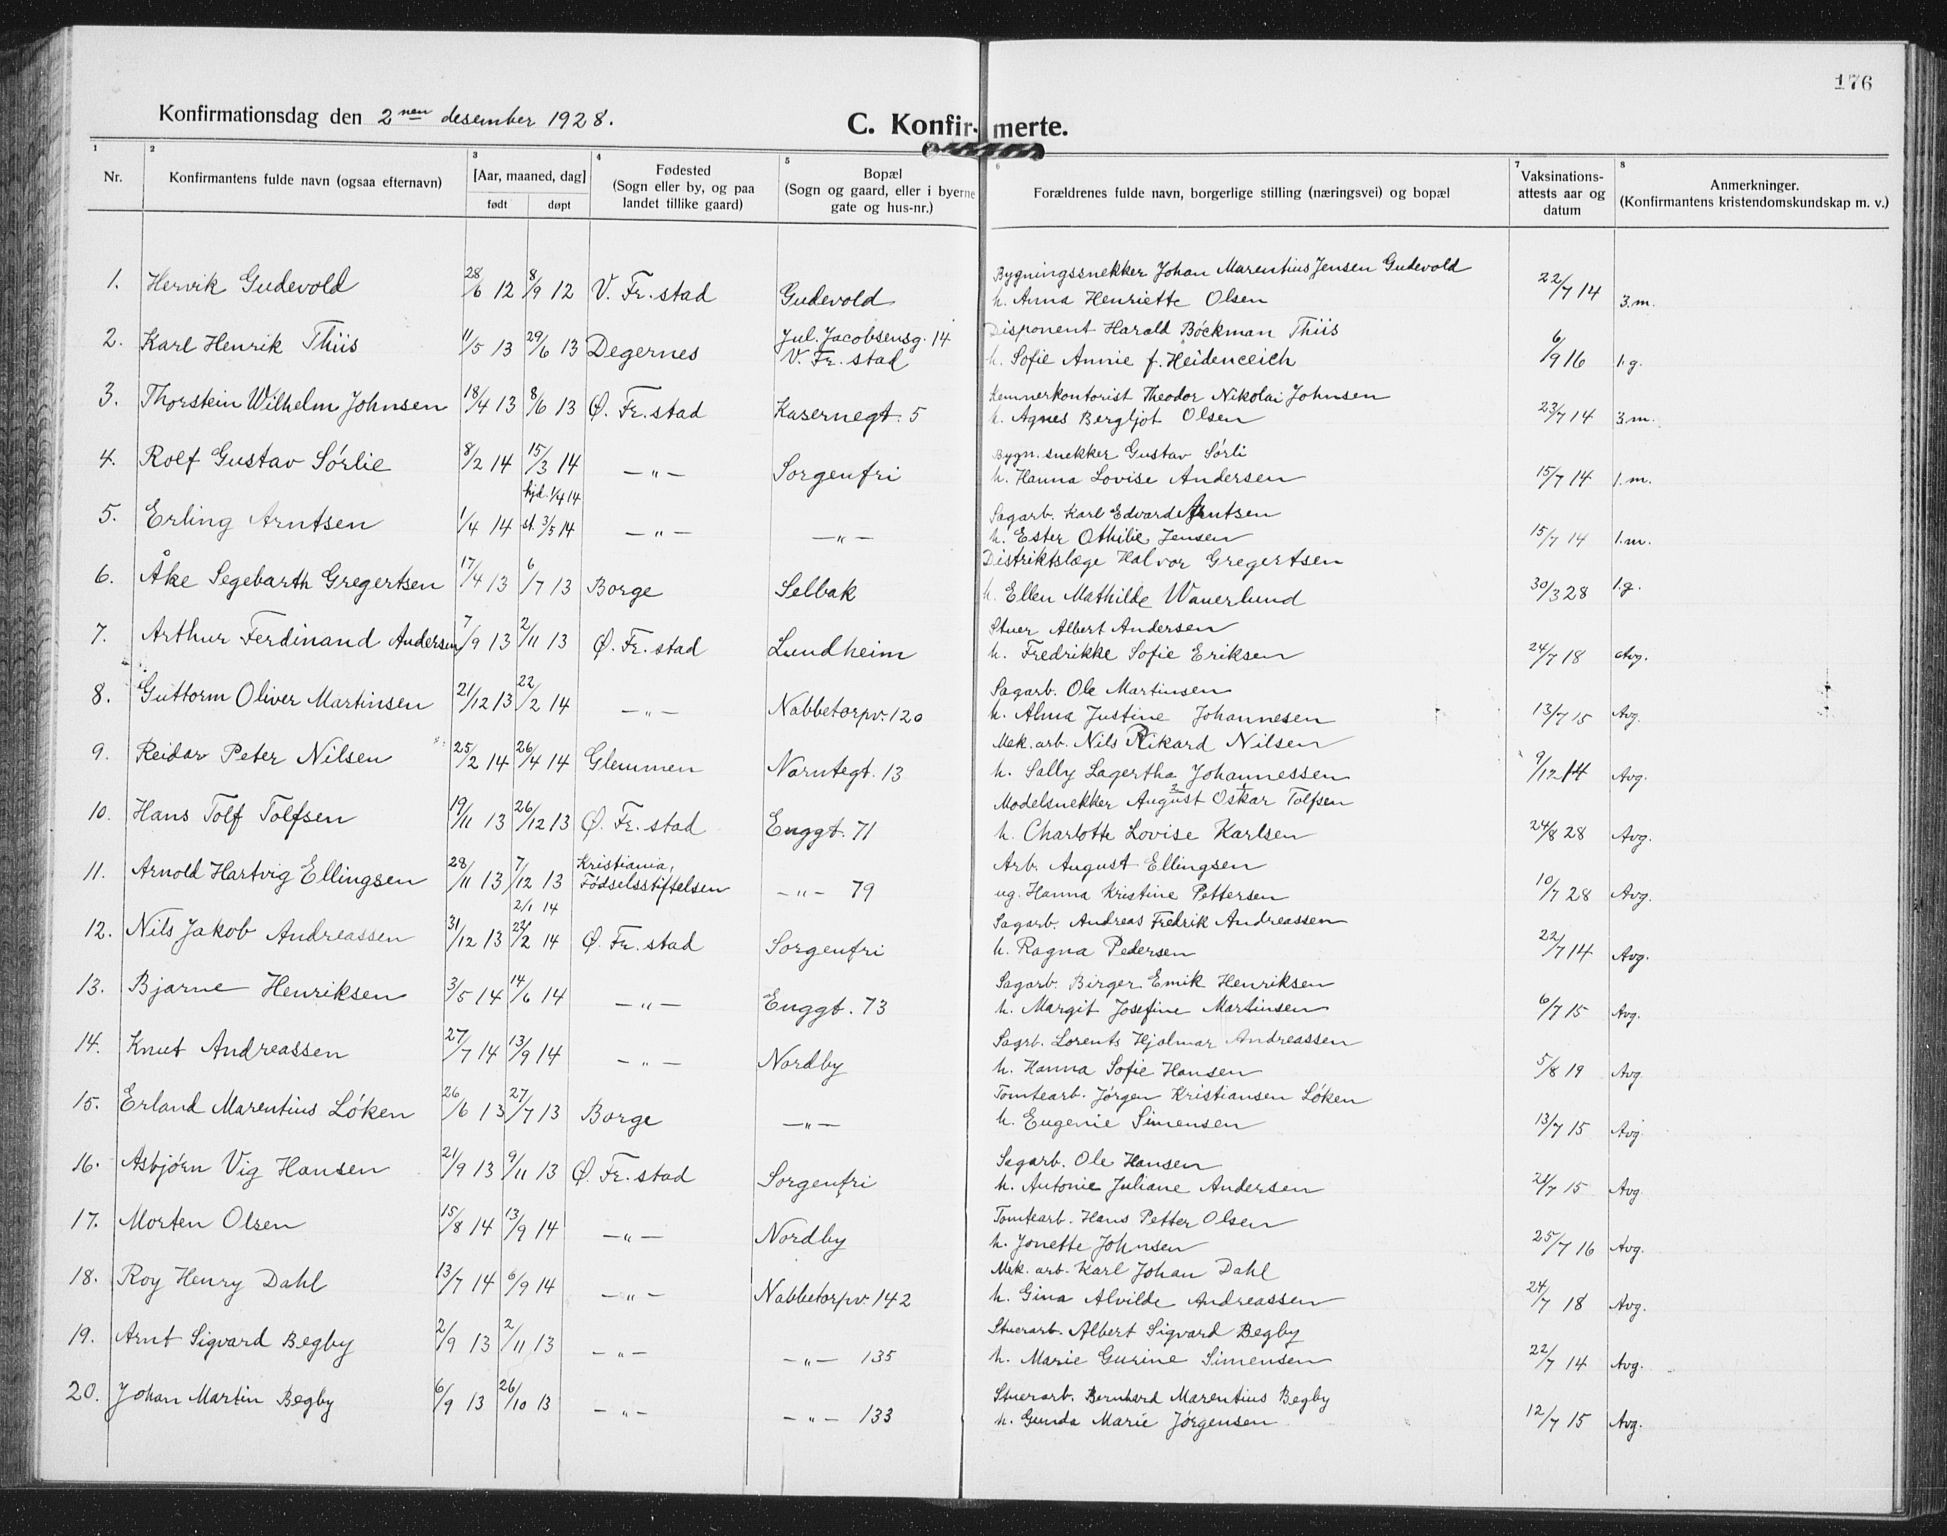 176
Konfirmationsdag den 2nen desember 1928.
C. Konfirmerte.
1 2 3 4 5 6 7 8
Nr. Konfirmantens fulde navn (ogsaa efternavn) [Aar, maaned, dag] født døpt Fødested (Sogn eller by, og paa landet tillike gaard) Bopæl (Sogn og gaard, eller i byerne gate og hus-nr.) Forældrenes fulde navn, borgerlige stilling (næringsvei) og bopæl Vaksinations-attests aar og datum Anmerkninger. (Konfirmantens kristendomskundskap m. v.)
Bygningssnekker Johan Marentius Jensen Gudevold
1. Henrik Gudevold 28/6 12 8/9 12 V. Fr.stad Gudevold h. Anna Henriette Olsen 22/7 14 3.m.
Jul. Jacobsensg. 14 Disponent Harald Böckman Thiis
2. Karl Henrik Thiis 11/5 13 29/6 13 Degernes V. Fr.stad h. Sofie Annie f. Heidenreich 6/9 16 1.g.
Kemnerkontorist Theodor Nikolai Johnsen
3. Thorstein Wilhelm Johnsen 18/4 13 8/6 13 Ø. Fr.stad Kasernegt. 5 h. Agnes Bergljot Olsen 23/7 14 3.m.
Bygn.snekker Gustav Sørli
4. Rolf Gustav Sørlie 8/2 14 15/3 14 —„— Sorgenfri h. Hanna Lovise Andersen 15/7 14 1.m.
hjd. 1/4 14 Sagarb. Karl Edvard Arntsen
5. Erling Arntsen 1/4 14 st. 3/5 14 —„— —„— h. Ester Othilie Jensen 15/7 14 1.m.
Distriktslæge Halvor Gregertsen
6. Åke Segebarth Gregertsen 17/4 13 6/7 13 Borge Selbak h. Ellen Mathilde Wanerlund 30/3 28 1.g.
Stuer Albert Andersen
7. Arthur Ferdinand Andersen 7/9 13 2/11 13 Ø. Fr.stad Lundheim h. Fredrikke Sofie Eriksen 24/7 18 Avg.
Sagarb. Ole Martinsen
8. Guttorm Oliver Martinsen 21/12 13 22/2 14 —„— Nabbetorpv. 120 h. Alma Justine Johannesen 13/7 15 Avg.
Mek. arb. Nils Rikard Nilsen
9. Reidar Peter Nilsen 25/2 14 26/4 14 Glemmen Narntegt. 13 h. Sally Lagertha Johannessen 9/12 14 Avg.
Modelsnekker August Oskar Tolfsen
10. Hans Tolf Tolfsen 19/11 13 26/12 13 Ø. Fr.stad Enggt. 71 h. Charlotte Lovise Karlsen 24/8 28 Avg.
Kristiania, Arb. August Ellingsen
11. Arnold Hartvig Ellingsen 28/11 13 7/12 13 Fødselsstiftelsen —„— 79 ug. Hanna Kristine Pettersen 10/7 28 Avg.
2/1 14 Sagarb. Andreas Fredrik Andreassen
12. Nils Jakob Andreassen 31/12 13 22/2 14 Ø. Fr.stad Sorgenfri h. Ragna Pedersen 22/7 14 Avg.
Sagarb. Birger Emik Henriksen
13. Bjarne Henriksen 3/5 14 14/6 14 —„— Enggt. 73 h. Margit Josefine Martinsen 6/7 15 Avg.
Sagrb. Lorents Hjalmar Andreassen
14. Knut Andreassen 27/7 14 13/9 14 —„— Nordby h. Hanna Sofie Hansen 5/8 19 Avg
Tomtearb. Jørgen Kristiansen Løken
15. Erland Marentius Løken 26/6 13 27/7 13 Borge —„— h. Eugenie Simensen 13/7 15 Avg.
Sagarb. Ole Hansen
16. Asbjørn Vig Hansen 21/9 13 9/11 13 Ø. Fr.stad Sorgenfri h. Antonie Juliane Andersen 21/7 15 Avg.
Tomtearb. Hans Petter Olsen
17. Morten Olsen 15/8 14 13/9 14 —„— Nordby h. Jonette Johnsen 25/7 16 Avg.
Mek. arb. Karl Johan Dahl
18. Roy Henry Dahl 13/7 14 6/9 14 —„— Nabbetorpv. 142 h. Gina Alvilde Andreassen 24/7 18 Avg.
Stuerarb. Albert Sigvard Begby
19. Arnt Sigvard Begby 2/9 13 2/11 13 —„— —„— 135 h. Marie Gurine Simensen 22/7 14 Avg.
Stuerarb. Bernhard Marentius Begby
20. Johan Martin Begby 6/9 13 26/10 13 —„— —„— 133 h. Gunda Marie Jørgensen 12/7 15 Avg.